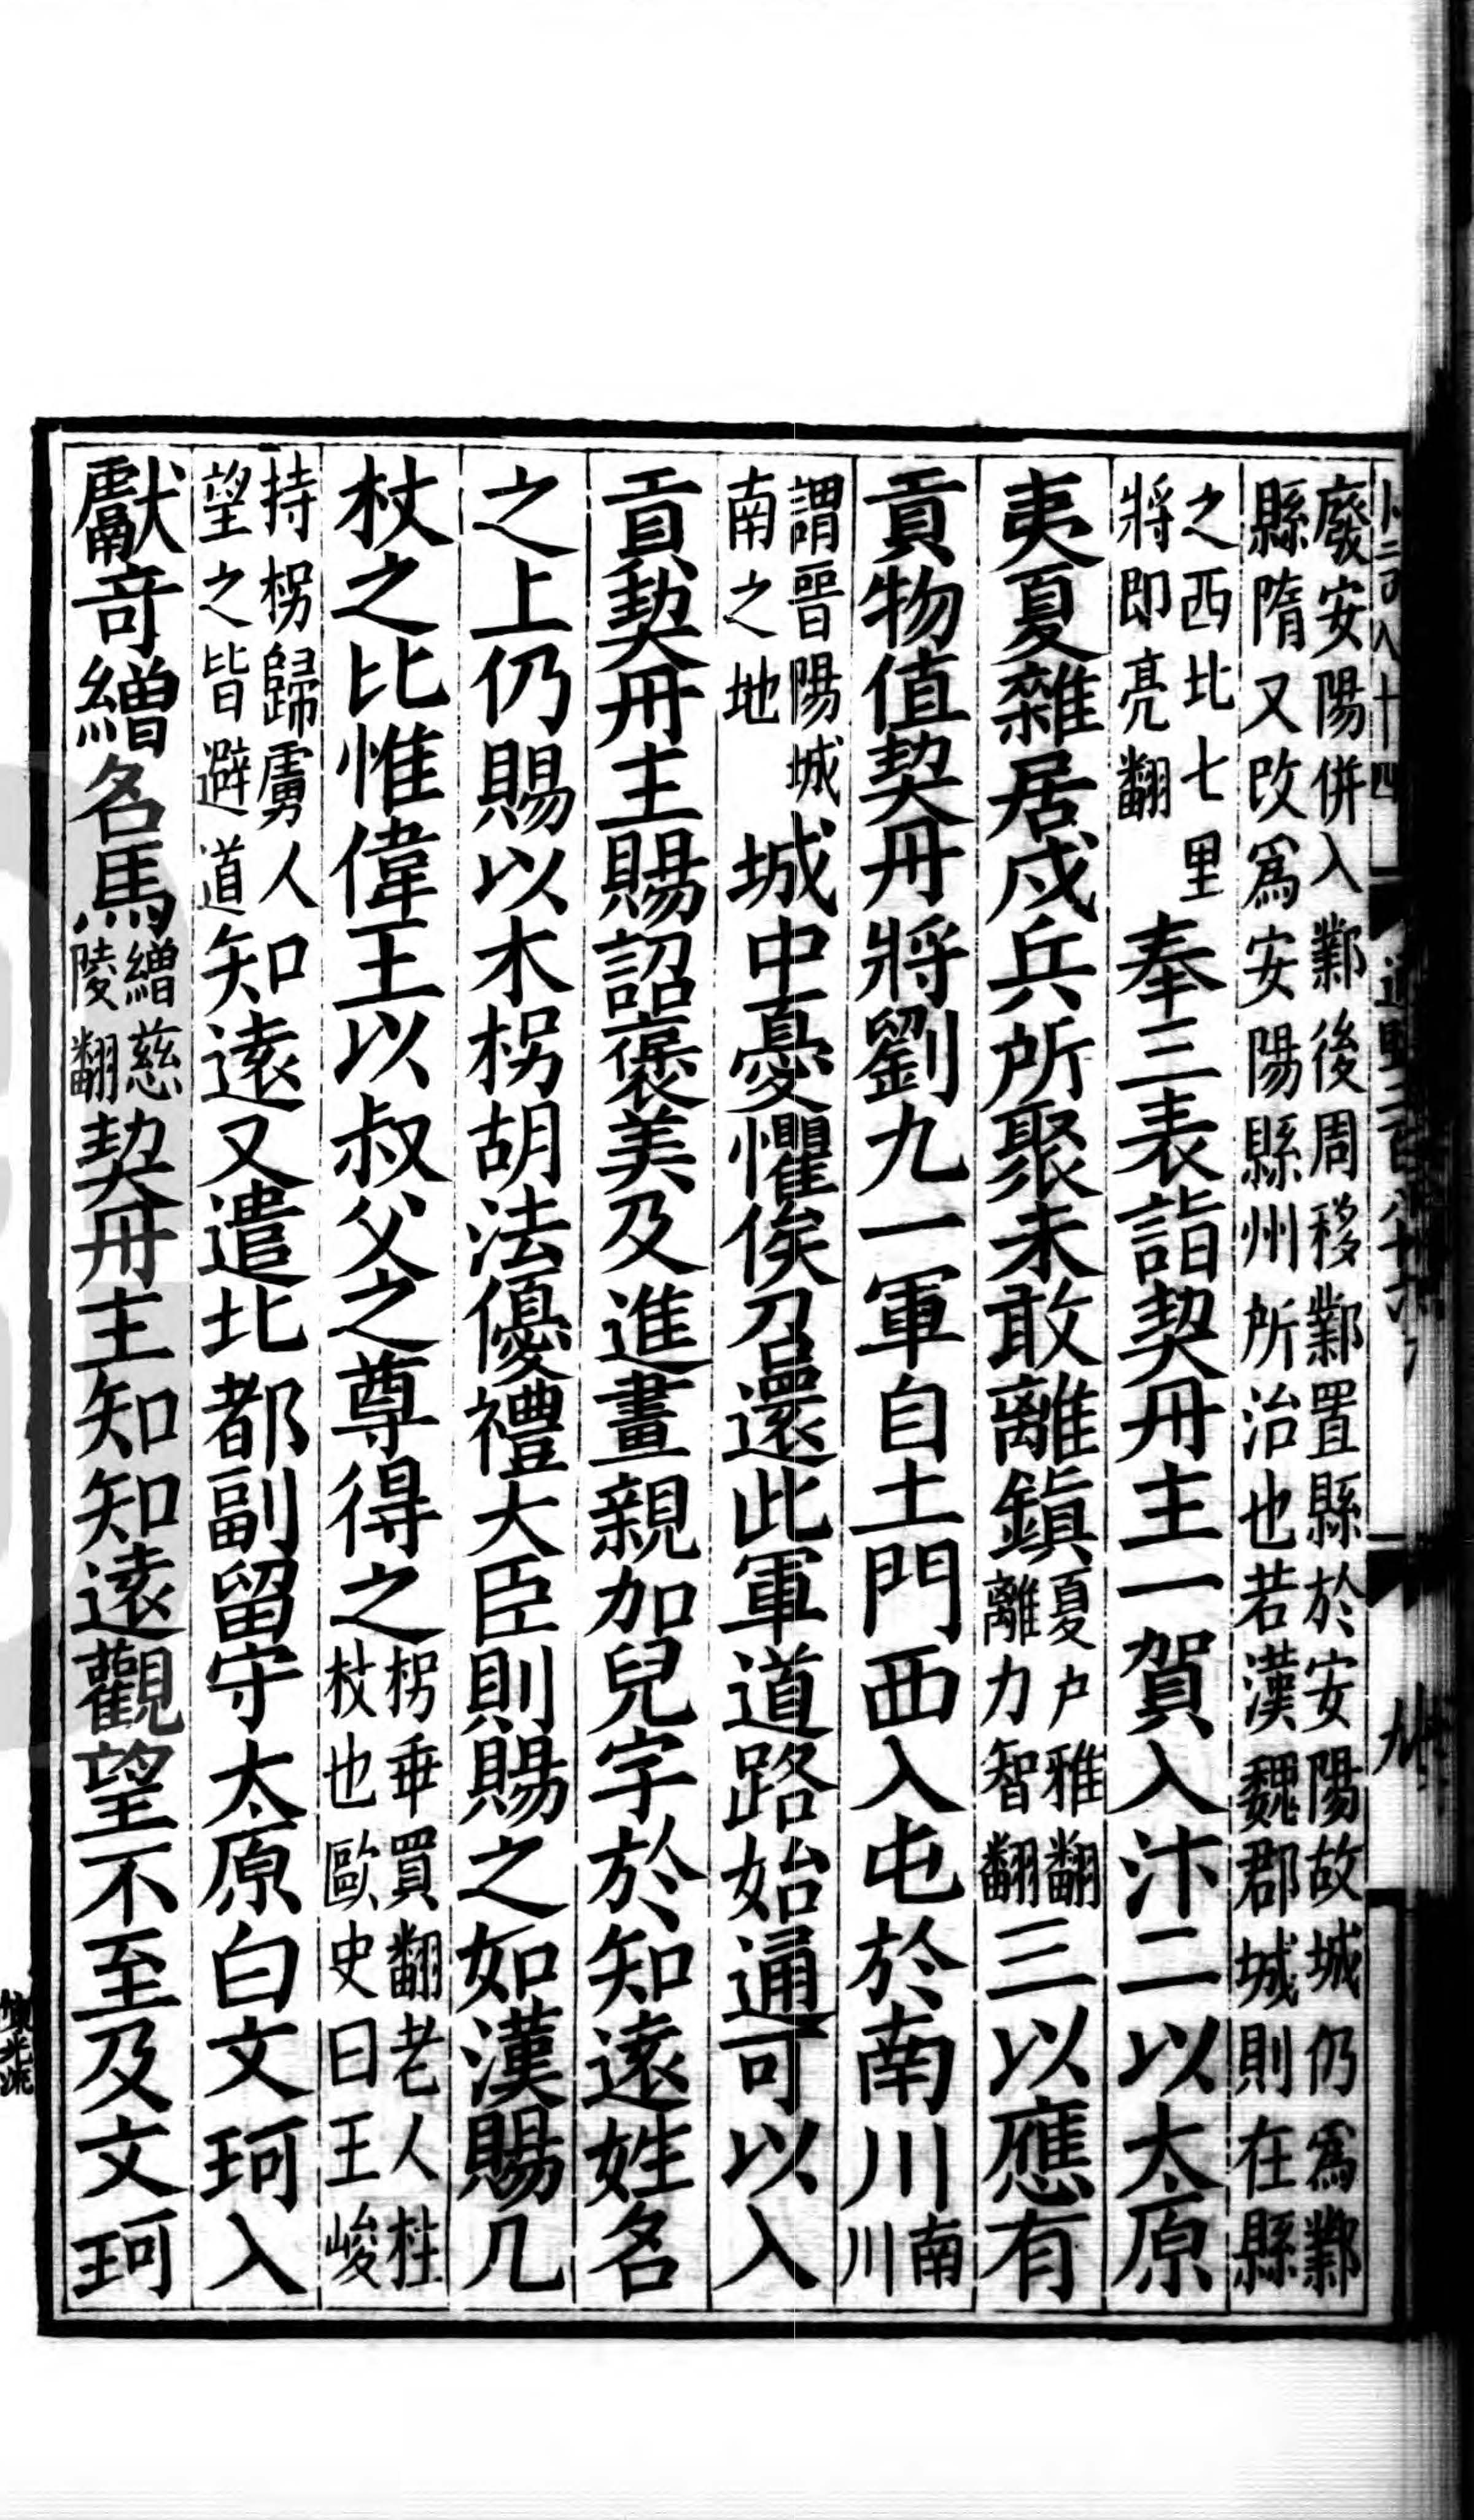 廢安陽併入鄴後周移鄴置縣於安陽故城仍爲鄴
縣隋又改爲安陽縣州所治也若漢魏郡城則在縣
之西北七里
將即亮翻
奉三表詣契丹主一賀入汴二以太原
夷夏雜居戍兵所聚未敢離鎮
夏户雅翻
離力智翻
三以應有
貢物值契丹將劉九一軍自土門西入屯於南川
南
川
謂晉陽城
南之地
城中憂懼俟召還此軍道路始通可以入
貢契丹主賜詔褒美及進畫親加兒字於知遠姓名
之上仍賜以木柺胡法優禮大臣則賜之如漢賜几
杖之比惟偉王以叔父之尊得之
柺乖買翻老人柱
杖也歐史曰王峻
持柺歸虜人
望之皆避道
知遠又遣北都副留守太原白文珂入
獻竒繒名馬
繒慈
陵翻
契丹主知知遠觀望不至及文珂